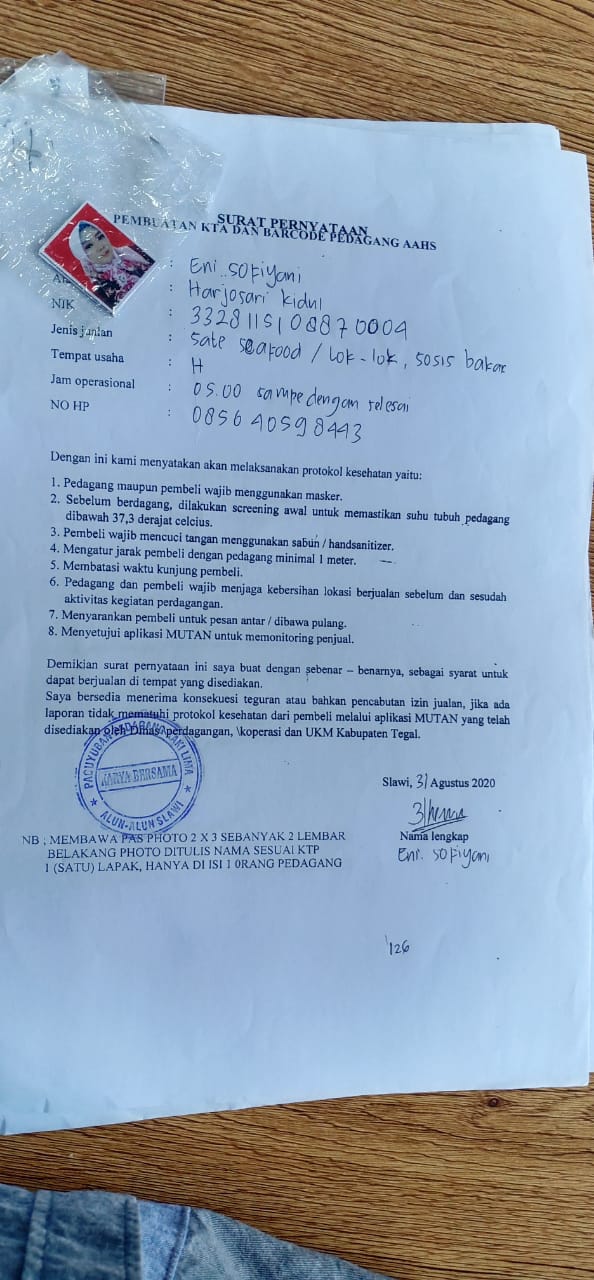 SURAT PERNYATAAN
PEMBUATAN KTA DAN BARCODE PEDAGANG AAHS
: Eni sofiyani
: Harjosari Kidul
NIK : 3328115108870004
Jenis jualan : Sate seafood / Lok-lok, sosis bakar
Tempat usaha : H
Jam operasional : 05.00 sampe dengan selesai
NO HP : 085640598443
Dengan ini kami menyatakan akan melaksanakan protokol kesehatan yaitu:
1. Pedagang maupun pembeli wajib menggunakan masker.
2. Sebelum berdagang, dilakukan screening awal untuk memastikan suhu tubuh pedagang
dibawah 37,3 derajat celcius.
3. Pembeli wajib mencuci tangan menggunakan sabun / handsanitizer.
4. Mengatur jarak pembeli dengan pedagang minimal 1 meter.
5. Membatasi waktu kunjung pembeli.
6. Pedagang dan pembeli wajib menjaga kebersihan lokasi berjualan sebelum dan sesudah
aktivitas kegiatan perdagangan.
7. Menyarankan pembeli untuk pesan antar / dibawa pulang.
8. Menyetujui aplikasi MUTAN untuk memonitoring penjual.
Demikian surat pernyataan ini saya buat dengan sebenar – benarnya, sebagai syarat untuk
dapat berjualan di tempat yang disediakan.
Saya bersedia menerima konsekuesi teguran atau bahkan pencabutan izin jualan, jika ada
laporan tidak mematuhi protokol kesehatan dari pembeli melalui aplikasi MUTAN yang telah
disediakan oleh Dinas perdagangan, \koperasi dan UKM Kabupaten Tegal.
PAGUYUBAN PEDAGANG KAKI LIMA
KARYA BERSAMA
ALUN-ALUN SLAWI
Slawi, 31 Agustus 2020
Nama lengkap
Eni sofiyani
NB ; MEMBAWA PAS PHOTO 2 X 3 SEBANYAK 2 LEMBAR
BELAKANG PHOTO DITULIS NAMA SESUAI KTP
1 (SATU) LAPAK, HANYA DI ISI 1 0RANG PEDAGANG
126